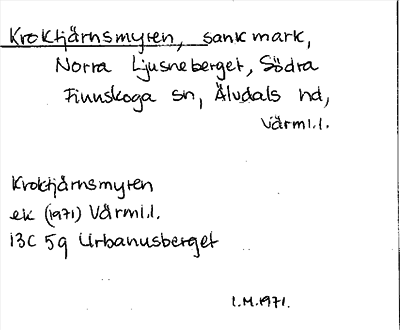 Kroktjärnsmyren, sank mark,
Norra Ljusneberget, Södra
Finnskoga sn, Älvdals hd,
Värml.l.
Kroktjärnsmyren
ek (1971) Värml.l.
13C 5g Urbanusberget
I.M.1971.